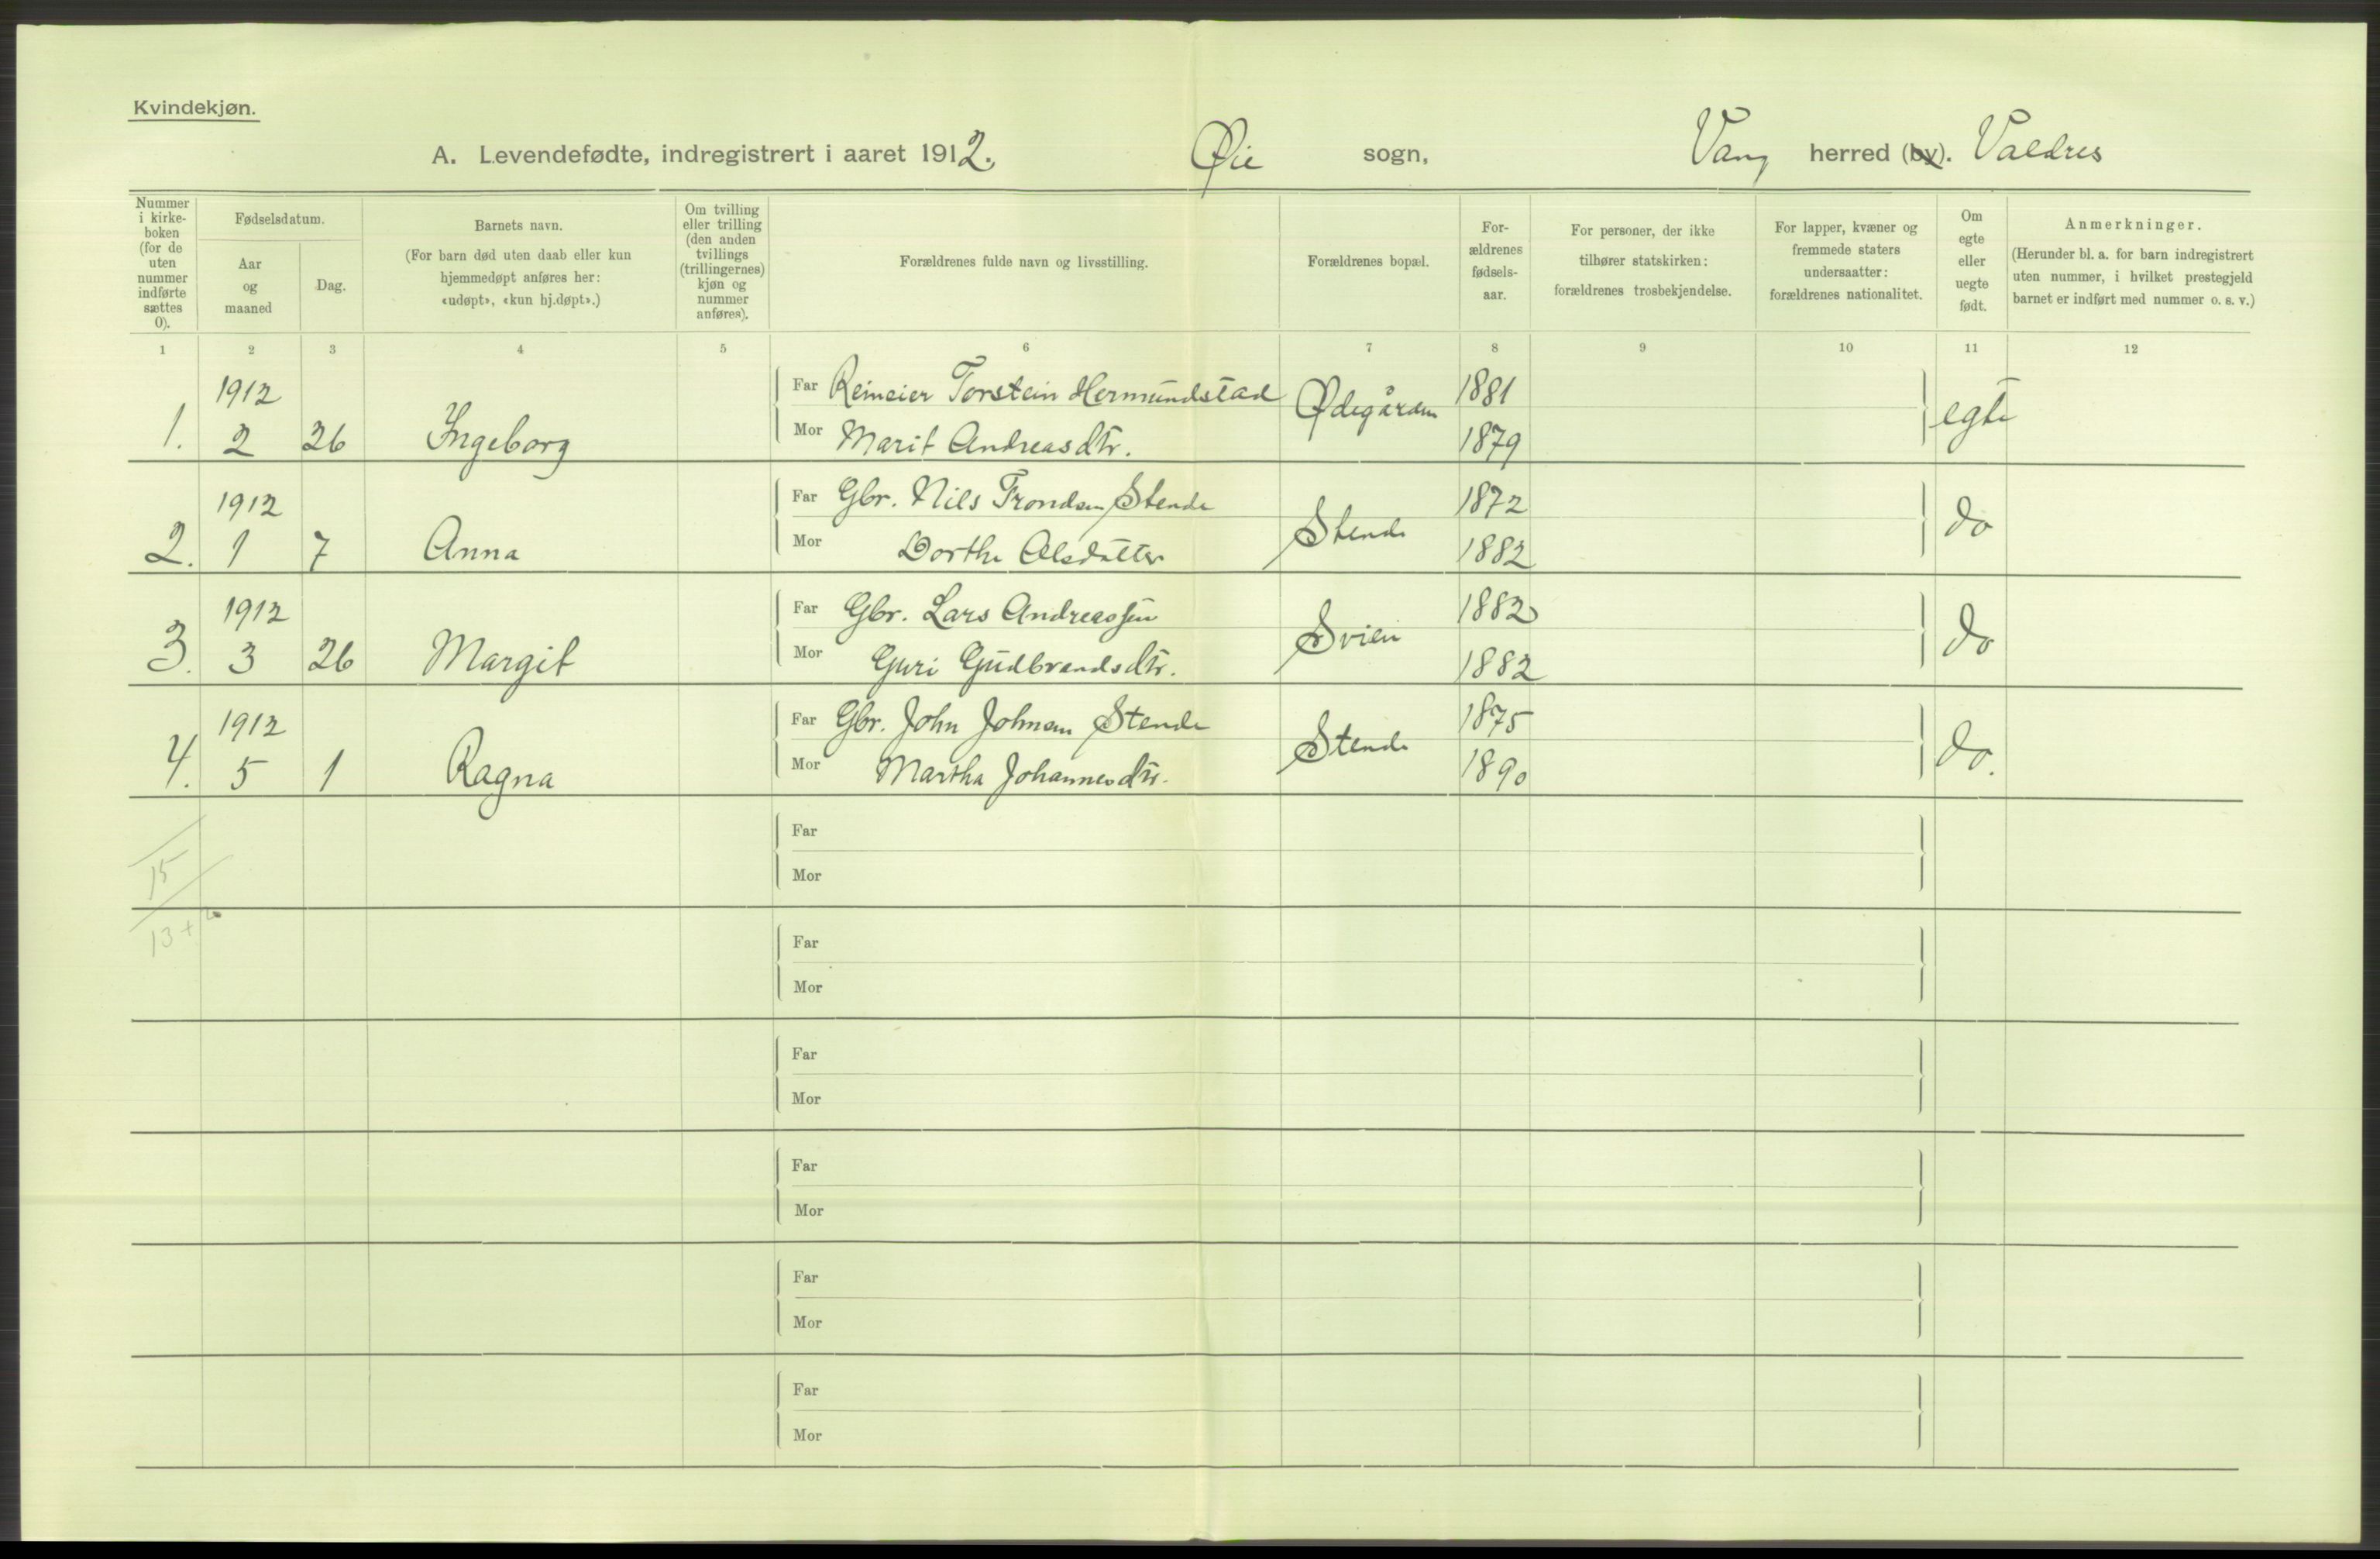 Kvindekjøn.
A. Levendefødte, indregistrert i aaret 1912. Øie sogn, Vang herred (by). Valdres
Nummer i kirke-boken (for de uten nummer indførte sættes 0).
Fødselsdatum.
Aar og maaned
Dag.
Barnets navn.
(For barn død uten daab eller kun hjemmedøpt anføres her: «udøpt», «kun hj.døpt».)
Om tvilling eller trilling (den anden tvillings (trillingernes) kjøn og nummer anføres).
Forældrenes fulde navn og livsstilling.
Forældrenes bopæl.
For-ældrenes fødsels-aar.
For personer, der ikke tilhører statskirken: forældrenes trosbekjendelse.
For lapper, kvæner og fremmede staters undersaatter: forældrenes nationalitet.
Om egte eller uegte født.
Anmerkninger.
(Herunder bl. a. for barn indregistrert uten nummer, i hvilket prestegjeld barnet er indført med nummer o. s. v.)
1 2 3 4 5 6 7 8 9 10 11 12
1912 Far Reineier Torstein Hermundstad Ødegården 1881 egte
1. 2 26 Ingeborg Mor Marit Andreasdtr. 1879
1912 Far Gbr. Nils Trondsen Stende Stende 1872 do
2. 1 7 Anna Mor Dorthe Olsdatter 1882
1912 Far Gbr. Lars Andreassen Svien 1882 do
3. 3 26 Margit Mor Guri Gudbrandsdtr. 1882
1912 Far Gbr. John Johnsen Stende Stende 1875 do.
4. 5 1 Ragna Mor Martha Johannesdtr. 1890
Far
15
Mor
13+2
Far
Mor
Far
Mor
Far
Mor
Far
Mor
Far
Mor